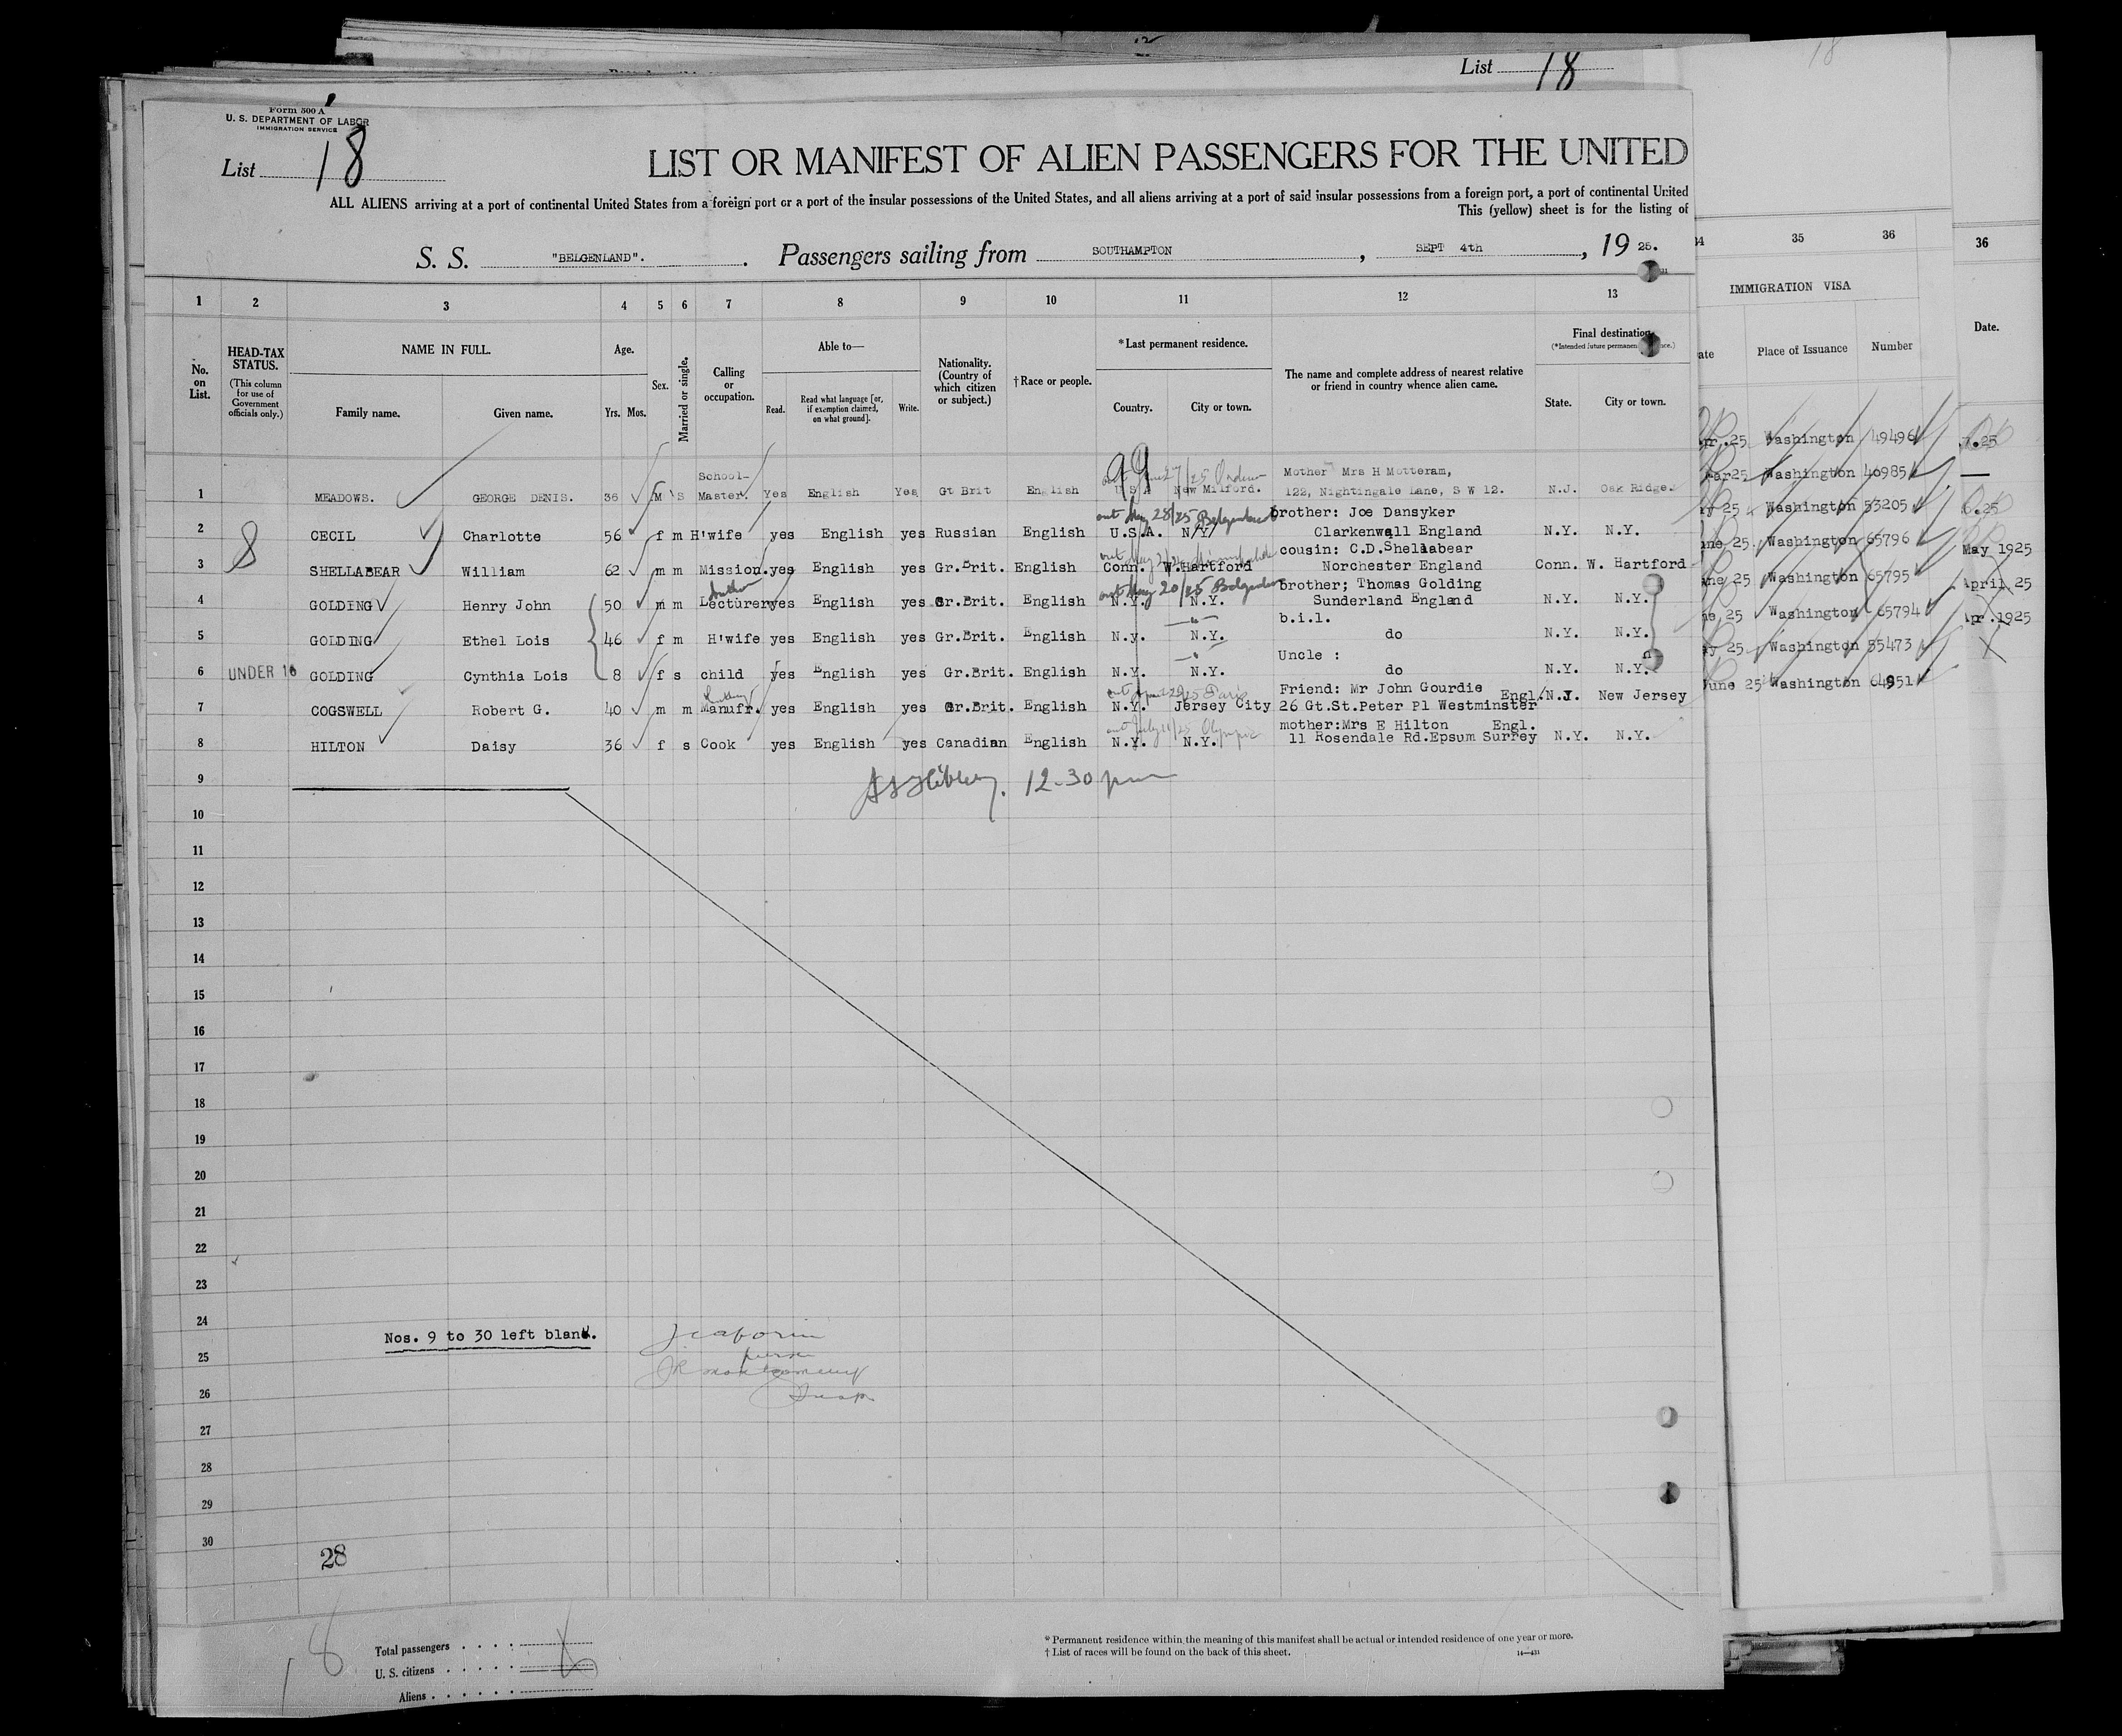 List 18
18
Form 500 A
U. S. DEPARTMENT OF LABOR
IMMIGRATION SERVICE
List 18
LIST OR MANIFEST OF ALIEN PASSENGERS FOR THE UNITED
ALL ALIENS arriving at a port of continental United States from a foreign port or a port of the insular possessions of the United States, and all aliens arriving at a port of said insular possessions from a foreign port, a port of continental United
This (yellow) sheet is for the listing of
S. S. "BELGENLAND". Passengers sailing from SOUTHAMPTON, SEPT 4th, 19 25.
1 2 3 4 5 6 7 8 9 10 11 12 13
No. on List.
HEAD-TAX STATUS.
(This column for use of Government officials only.)
NAME IN FULL.
Family name. Given name.
Age.
Yrs. Mos.
Sex.
Married or single.
Calling or occupation.
Able to—
Read. Read what language [or, if exemption claimed, on what ground]. Write.
Nationality. (Country of which citizen or subject.)
†Race or people.
*Last permanent residence.
Country. City or town.
The name and complete address of nearest relative or friend in country whence alien came.
Final destination
(*Intended future permanent
State. City or town.
35 36
IMMIGRATION VISA
Place of Issuance Number
36
Date.
99
1 MEADOWS. GEORGE DENIS. 36 M S School-Master. Yes English Yes Gt Brit English U S A New Milford. Mother Mrs H Motteram, 122, Nightingale Lane, S W 12. N.J. Oak Ridge.
out May 28/25 Belgenland
2 CECIL Charlotte 56 f m H'wife yes English yes Russian English U.S.A. N/Y/ brother: Joe Dansyker Clarkenwall England N.Y. N.Y.
8
3 SHELLABEAR William 62 m m Mission. yes English yes Gr.Brit. English Conn. W.Hartford cousin: C.D.Shellabear Norchester England Conn. W. Hartford
out May 20/25 Belgenland
4 GOLDING Henry John 50 m m Author Lecturer yes English yes Gr.Brit. English N.Y. N.Y. brother; Thomas Golding Sunderland England N.Y. N.Y.
5 GOLDING Ethel Lois 46 f m H'wife yes English yes Gr.Brit. English N.y. N.Y. b.i.l. do N.Y. N.Y.
UNDER 16
6 GOLDING Cynthia Lois 8 f s child yes English yes Gr.Brit. English N.Y. N.Y. Uncle : do N.Y. N.Y.
out April 29/25 Paris
7 COGSWELL Robert G. 40 m m Manufr. yes English yes Gr.Brit. English N.Y. Jersey City Friend: Mr John Gourdie Engl. 26 Gt.St.Peter Pl Westminster N.J. New Jersey
out July 11/25 Olympic
8 HILTON Daisy 36 f s Cook yes English yes Canadian English N.Y. N.Y. mother:Mrs E Hilton Engl. 11 Rosendale Rd.Epsum Surrey N.Y. N.Y.
12-30 pm
9
10
11
12
13
14
15
16
17
18
19
20
21
22
23
24
Nos. 9 to 30 left blank.
25
26
27
28
29
30
28
Washington 49496
Mar25 Washington 40985
25 Washington 53205
25 Washington 65796
25 Washington 65795
25 Washington 65794
25 Washington 55473
June 25 Washington 64951
May 1925
April 25
Apr .1925
18
Total passengers
U. S. citizens
Aliens
* Permanent residence within the meaning of this manifest shall be actual or intended residence of one year or more.
† List of races will be found on the back of this sheet.
14—431